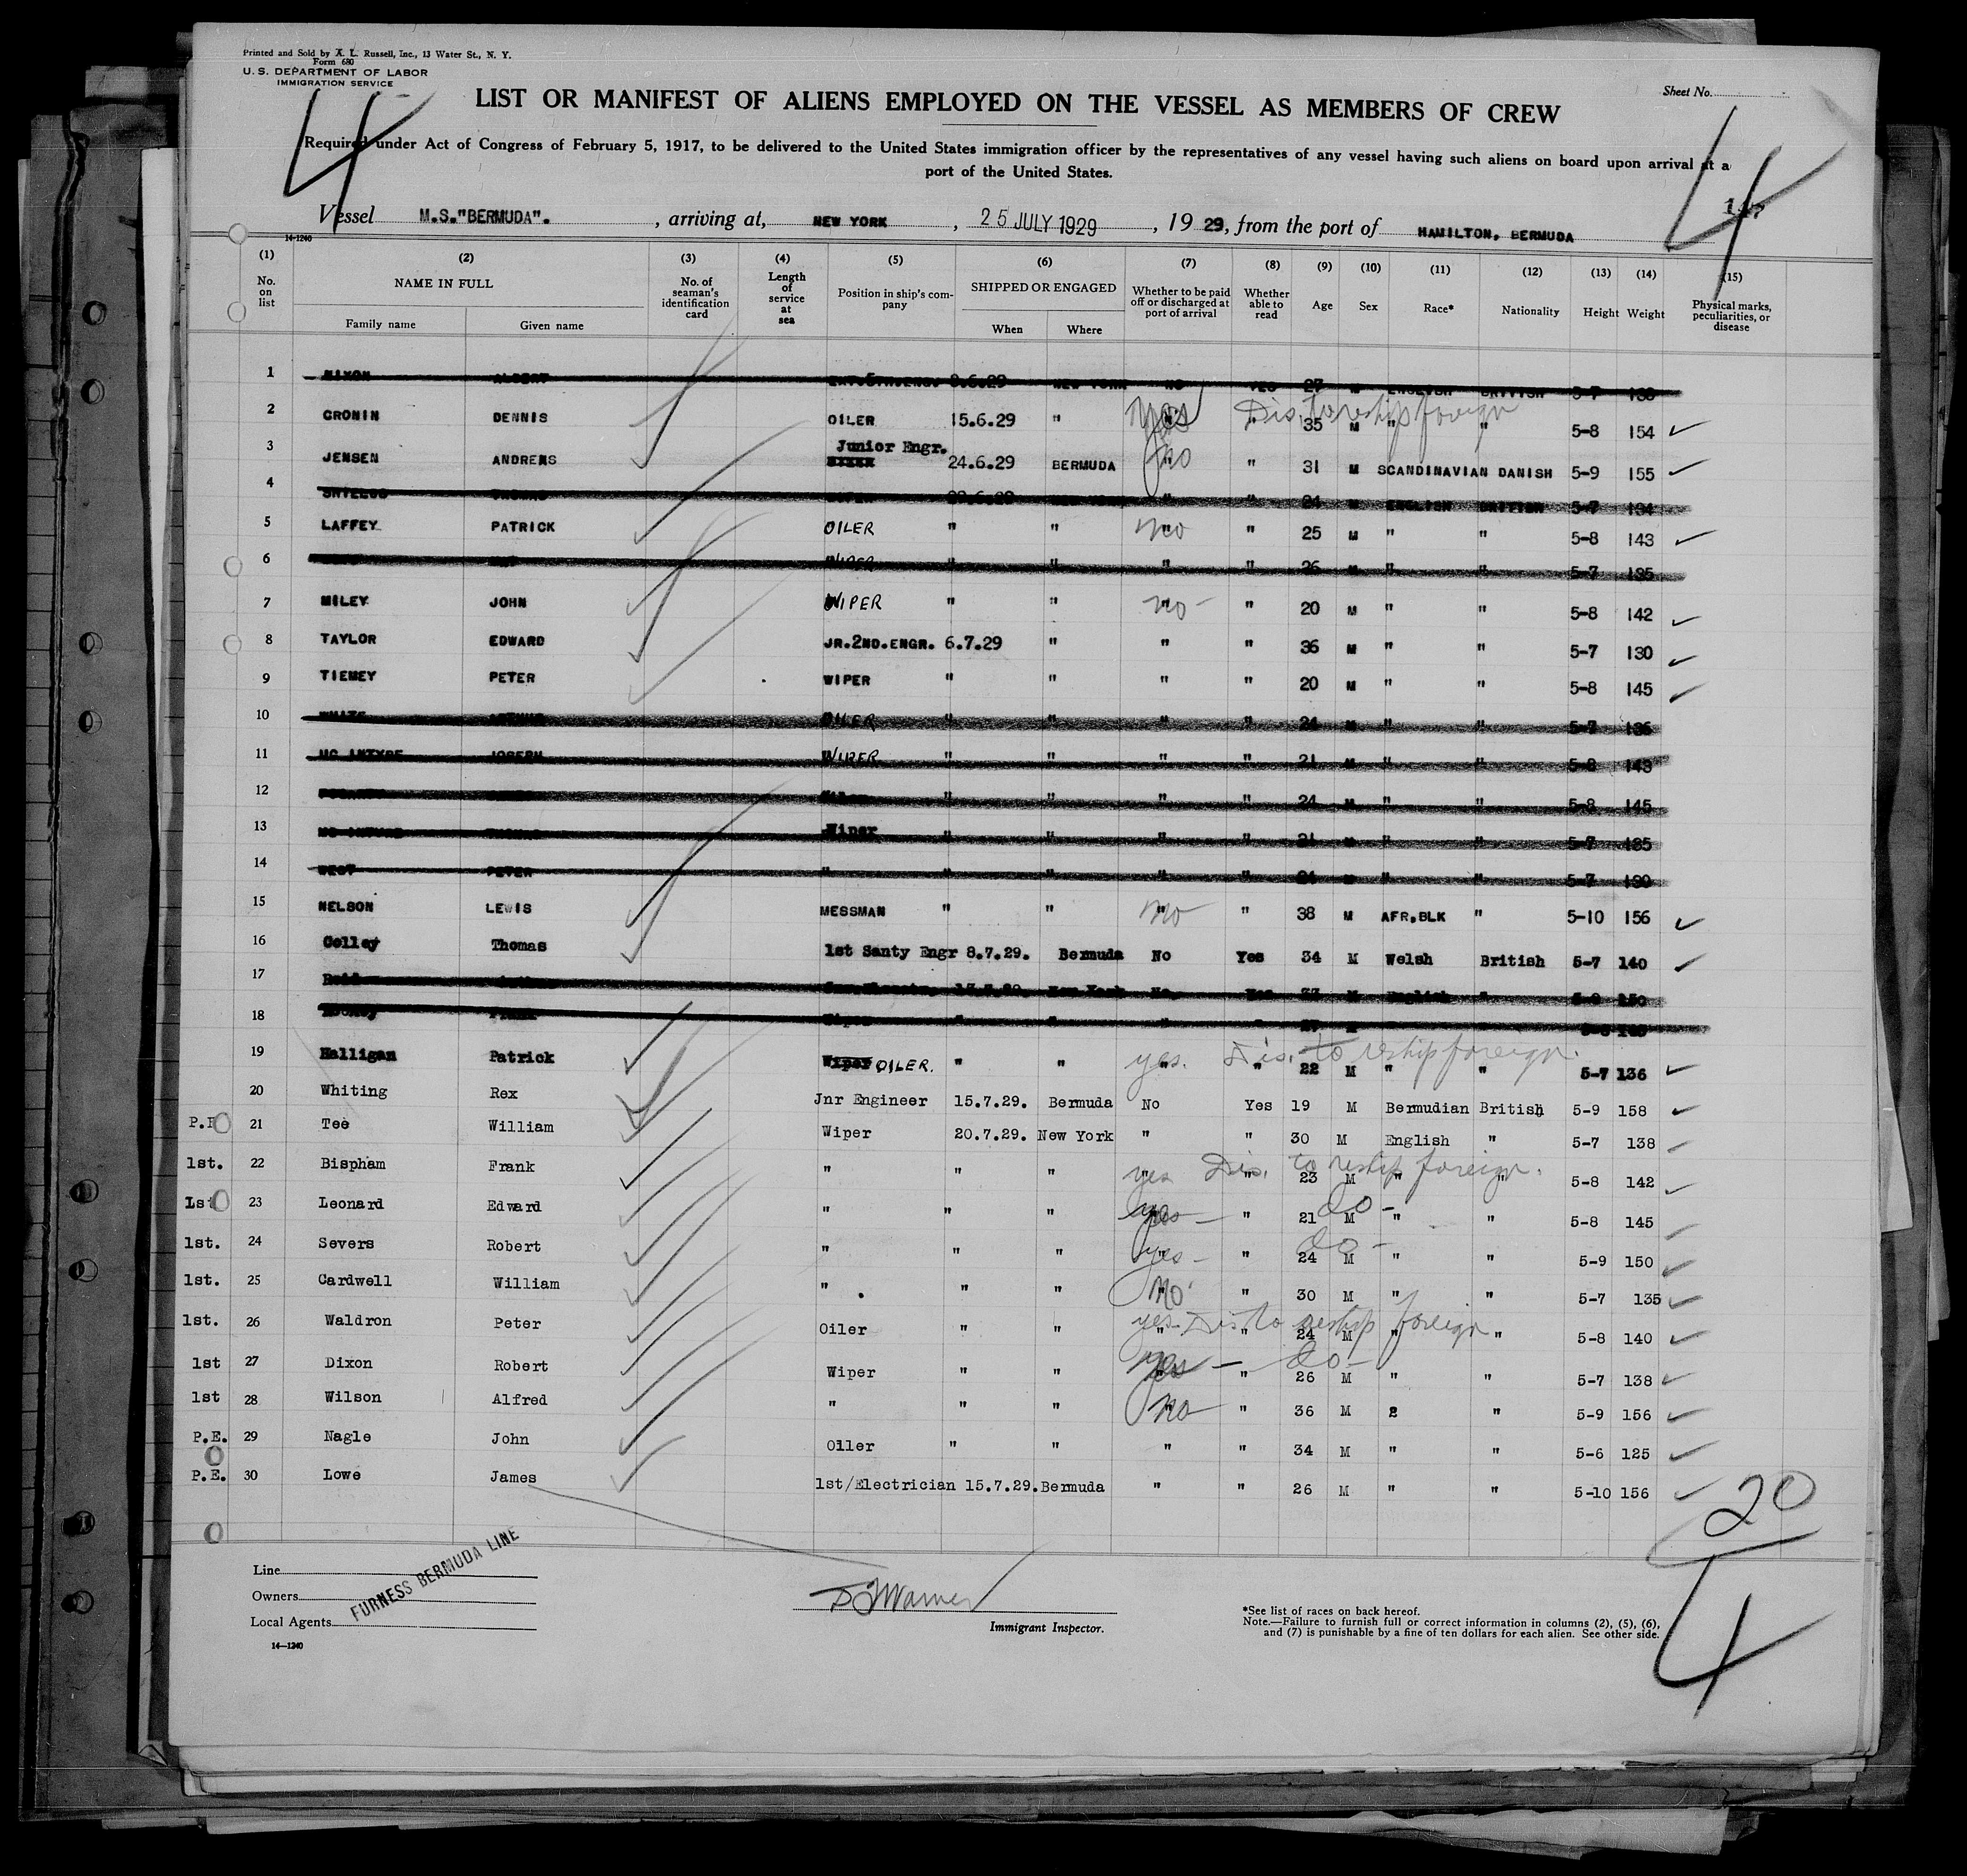 Printed and Sold by A. L. Russell, Inc., 13 Water St., N. Y.
Form 680
U. S. DEPARTMENT OF LABOR
IMMIGRATION SERVICE
Sheet No.
4
4
LIST OR MANIFEST OF ALIENS EMPLOYED ON THE VESSEL AS MEMBERS OF CREW
Required under Act of Congress of February 5, 1917, to be delivered to the United States immigration officer by the representatives of any vessel having such aliens on board upon arrival at a
port of the United States.
Vessel M.S."BERMUDA". , arriving at, NEW YORK , 25 JULY 1929 , 19 29, from the port of HAMILTON, BERMUDA
14-1240
(1) (2) (3) (4) (5) (6) (7) (8) (9) (10) (11) (12) (13) (14) (15)
No. on list NAME IN FULL Family name Given name No. of seaman's identification card Length of service at sea Position in ship's company SHIPPED OR ENGAGED When Where Whether to be paid off or discharged at port of arrival Whether able to read Age Sex Race* Nationality Height Weight Physical marks, peculiarities, or disease
1 NIXON ALBERT NEW YORK NO YES 27 M ENGLISH BRITISH 5-7 
2 CRONIN DENNIS OILER 15.6.29 " yes " Dis. to reship foreign 35 M " " 5-8 154
3 JENSEN ANDRENS Junior Engr. 24.6.29 BERMUDA no " 31 M SCANDINAVIAN DANISH 5-9 155
4 SHIELDS THOMAS NEW YORK " " 24 M ENGLISH BRITISH 5-7 134
5 LAFFEY PATRICK OILER " " no " 25 M " " 5-8 143
6 WIPER " " " " 26 M " " 5-7 135
7 MILEY JOHN WIPER " " no - " 20 M " " 5-8 142
8 TAYLOR EDWARD JR.2ND.ENGR. 6.7.29 " " " 36 M " " 5-7 130
9 TIEMEY PETER WIPER " " " " 20 M " " 5-8 145
10 WHITE ARTHUR OILER " " " " 24 M " " 5-7 136
11 MC INTYRE JOSEPH WIPER " " " " 21 M " " 5-8 143
12 " " " " 24 M " " 5-8 145
13 MC INTYRE THOMAS Wiper " " " " 21 M " " 5-7 135
14 WEST PETER " " " " " 21 M " " 5-7 130
15 NELSON LEWIS MESSMAN " " no " 38 M AFR.BLK " 5-10 156
16 Colley Thomas 1st Santy Engr 8.7.29. Bermuda No Yes 34 M Welsh British 5-7 140
17 New York No. Yes 33 M English "
18 Frank Wiper " " " " 27 M
19 Halligan Patrick Wiper OILER. " " yes. " Dis. to reship foreign. 22 M " " 5-7 136
20 Whiting Rex Jnr Engineer 15.7.29. Bermuda No Yes 19 M Bermudian British 5-9 158
21 Tee William Wiper 20.7.29. New York " " 30 M English " 5-7 138
1st. 22 Bispham Frank " " " yes " Dis. to reship foreign. 23 M " " 5-8 142
1st 23 Leonard Edward " " " " do - 21 M " " 5-8 145
1st. 24 Severs Robert " " " yes - " do - 24 M " " 5-9 150
1st. 25 Cardwell William " " " No " 30 M " " 5-7 135
1st. 26 Waldron Peter Oiler " " yes - Dis to reship foreign " 24 M " " 5-8 140
1st 27 Dixon Robert Wiper " " yes - do - " 26 M " " 5-7 138
1st 28 Wilson Alfred " " " no " 36 M 2 " 5-9 156
P.E. 29 Nagle John Oiler " " " " 34 M " " 5-6 125
P.E. 30 Lowe James 1st/Electrician 15.7.29. Bermuda " " 26 M " " 5-10 156
20
4
Line
Owners
Local Agents
FURNESS BERMUDA LINE
14—1240
Immigrant Inspector.
*See list of races on back hereof.
Note.—Failure to furnish full or correct information in columns (2), (5), (6),
and (7) is punishable by a fine of ten dollars for each alien. See other side.